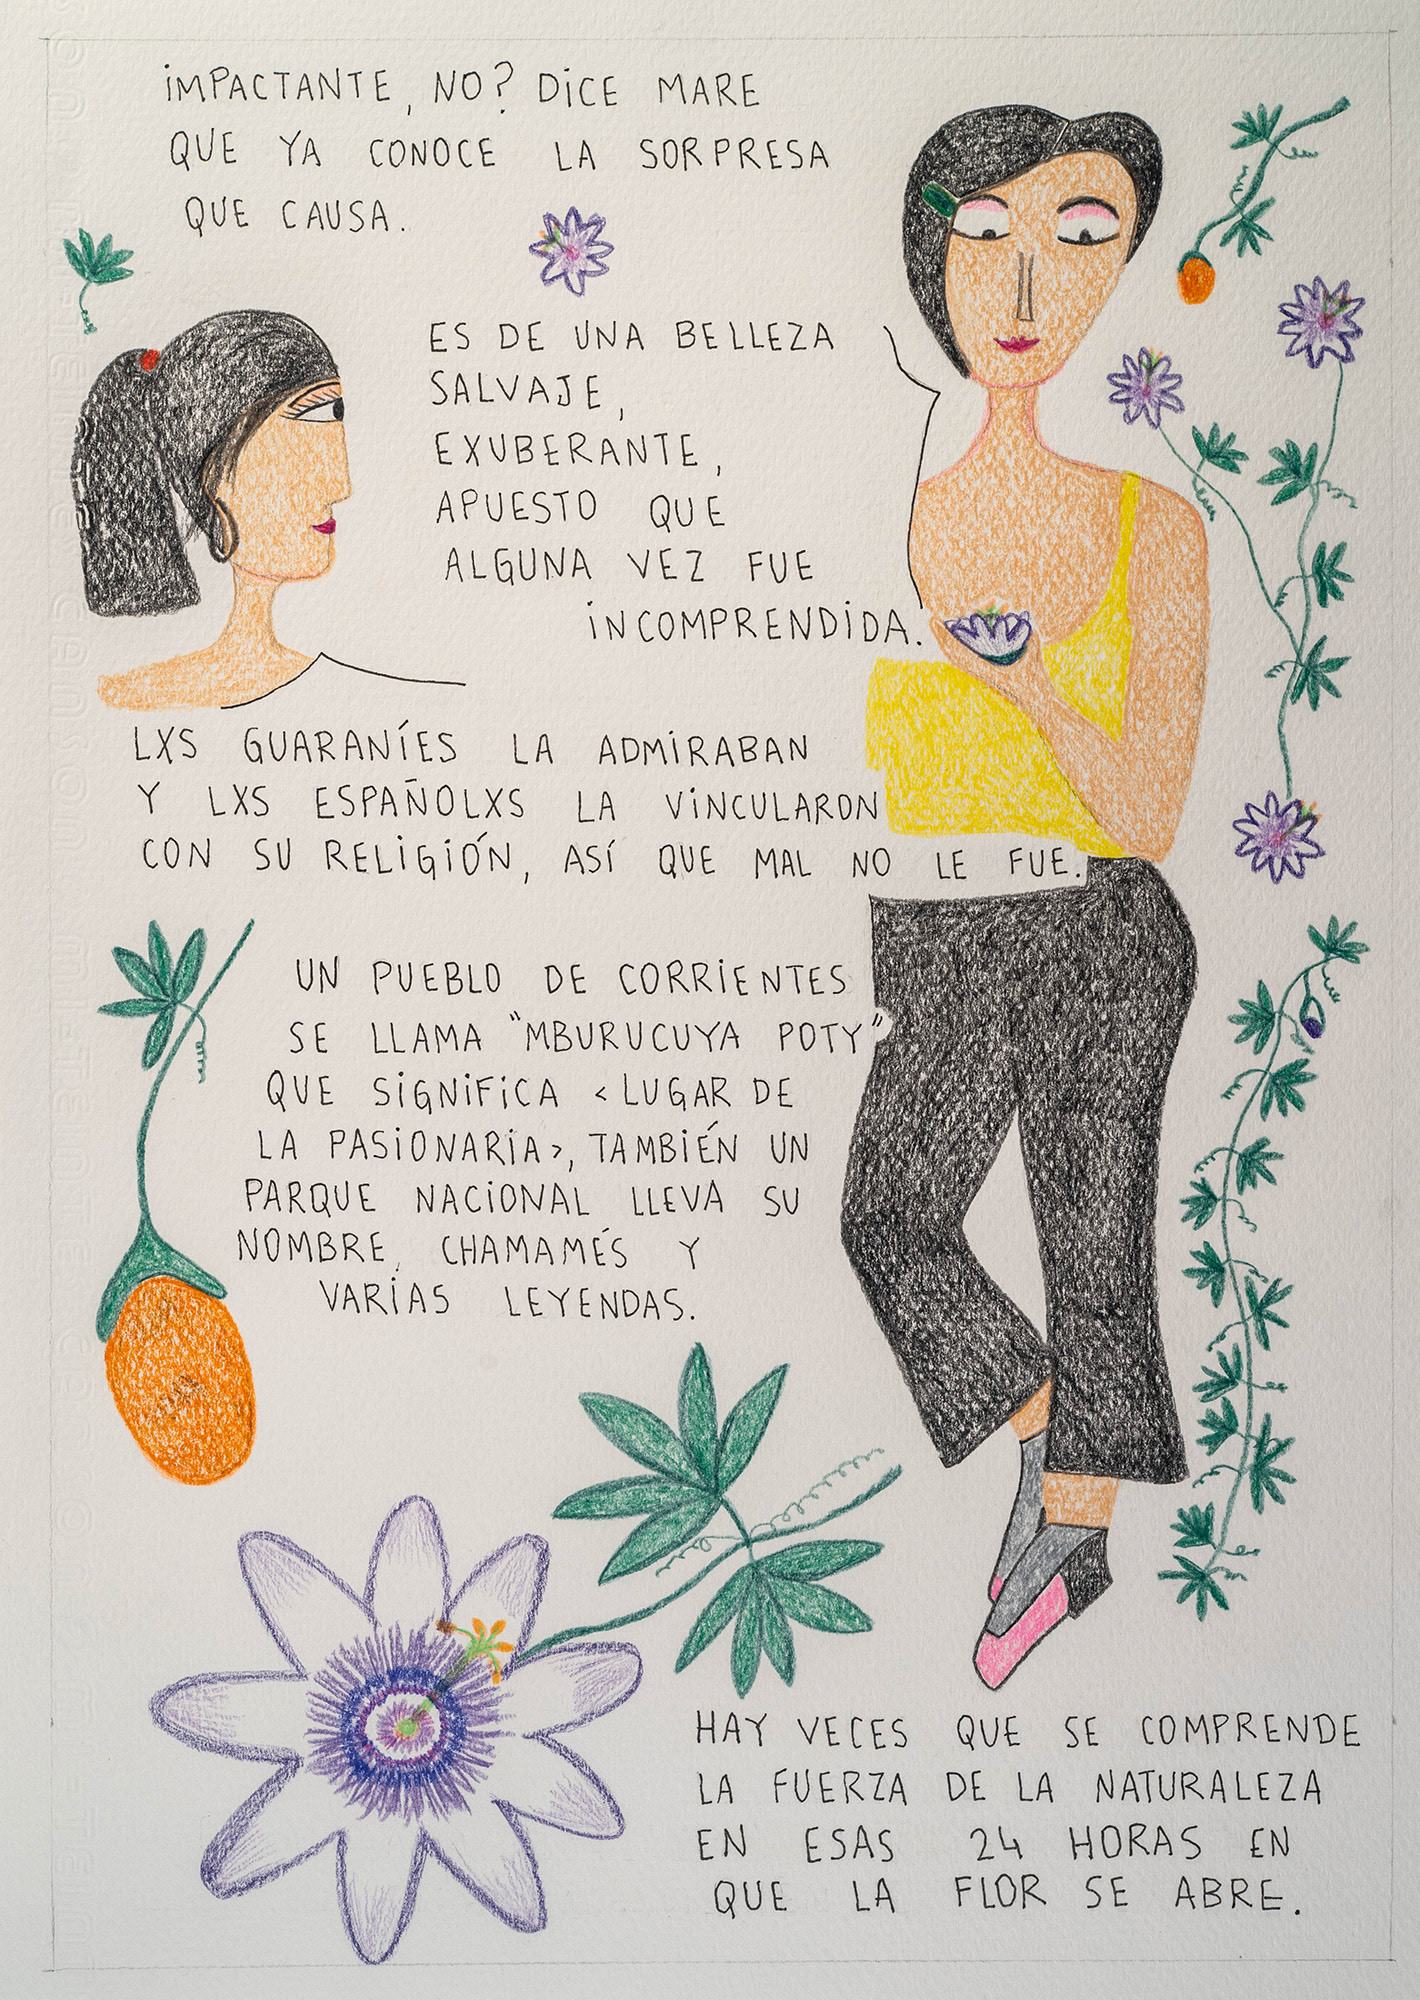 IMPACTANTE, NO? DICE MARE
QUE YA CONOCE LA SORPRESA
QUE CAUSA.
ES DE UNA BELLEZA
SALVAJE,
EXUBERANTE,
APUESTO QUE
ALGUNA VEZ FUE
INCOMPRENDIDA.
LXS GUARANÍES LA ADMIRABAN
Y LXS ESPAÑOLXS LA VINCULARON
CON SU RELIGIÓN, ASÍ QUE MAL NO LE FUE.
UN PUEBLO DE CORRIENTES
SE LLAMA "MBURUCUYA POTY"
QUE SIGNIFICA <LUGAR DE
LA PASIONARIA>, TAMBIÉN UN
PARQUE NACIONAL LLEVA SU
NOMBRE, CHAMAMÉS Y
VARIAS LEYENDAS.
HAY VECES QUE SE COMPRENDE
LA FUERZA DE LA NATURALEZA
EN ESAS 24 HORAS EN
QUE LA FLOR SE ABRE.